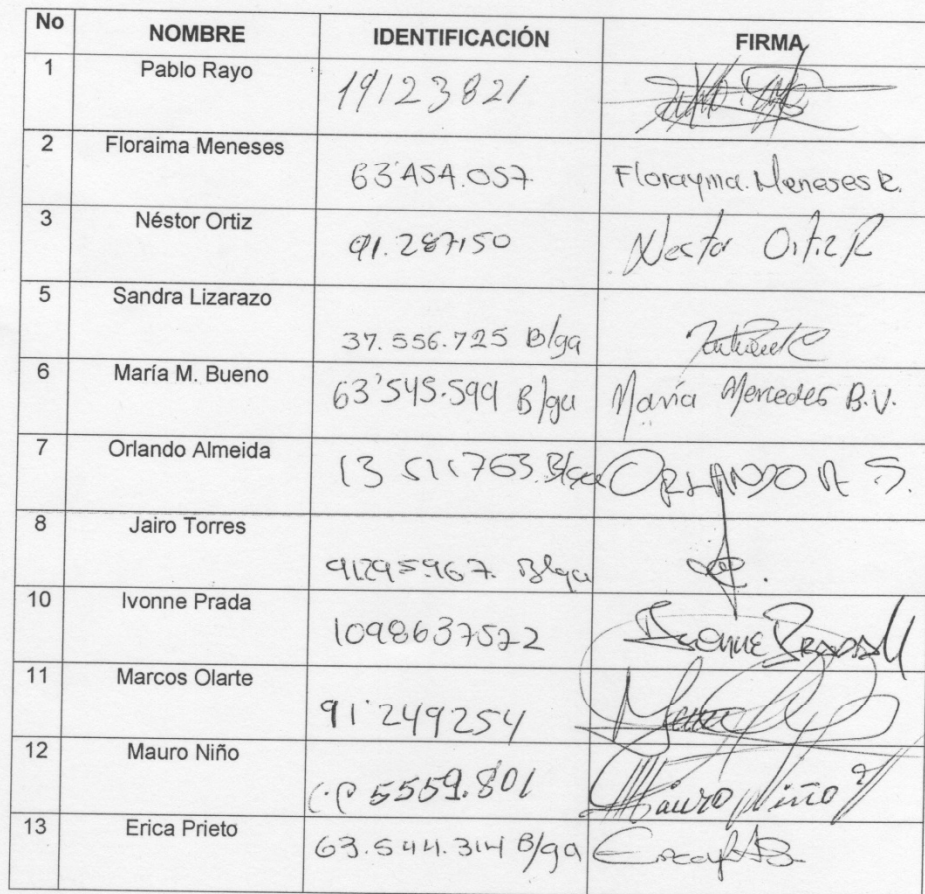 No NOMBRE IDENTIFICACIÓN FIRMA
1 Pablo Rayo 19123821
2 Floraima Meneses 63'454.057 Florayma.Meneses R.
3 Néstor Ortiz 91.287150 Nestor Ortiz R
5 Sandra Lizarazo 37.556.725 B/ga
6 María M. Bueno 63'545.599 B/ga María Mercedes B.V.
7 Orlando Almeida 13 511763 B/ga ORLANDO A S.
8 Jairo Torres 91295967. B/ga
10 Ivonne Prada 1098637522 Ivonne Prada
11 Marcos Olarte 91'249254
12 Mauro Niño 5559.801 Mauro Niño
13 Erica Prieto 63.544.314 B/ga